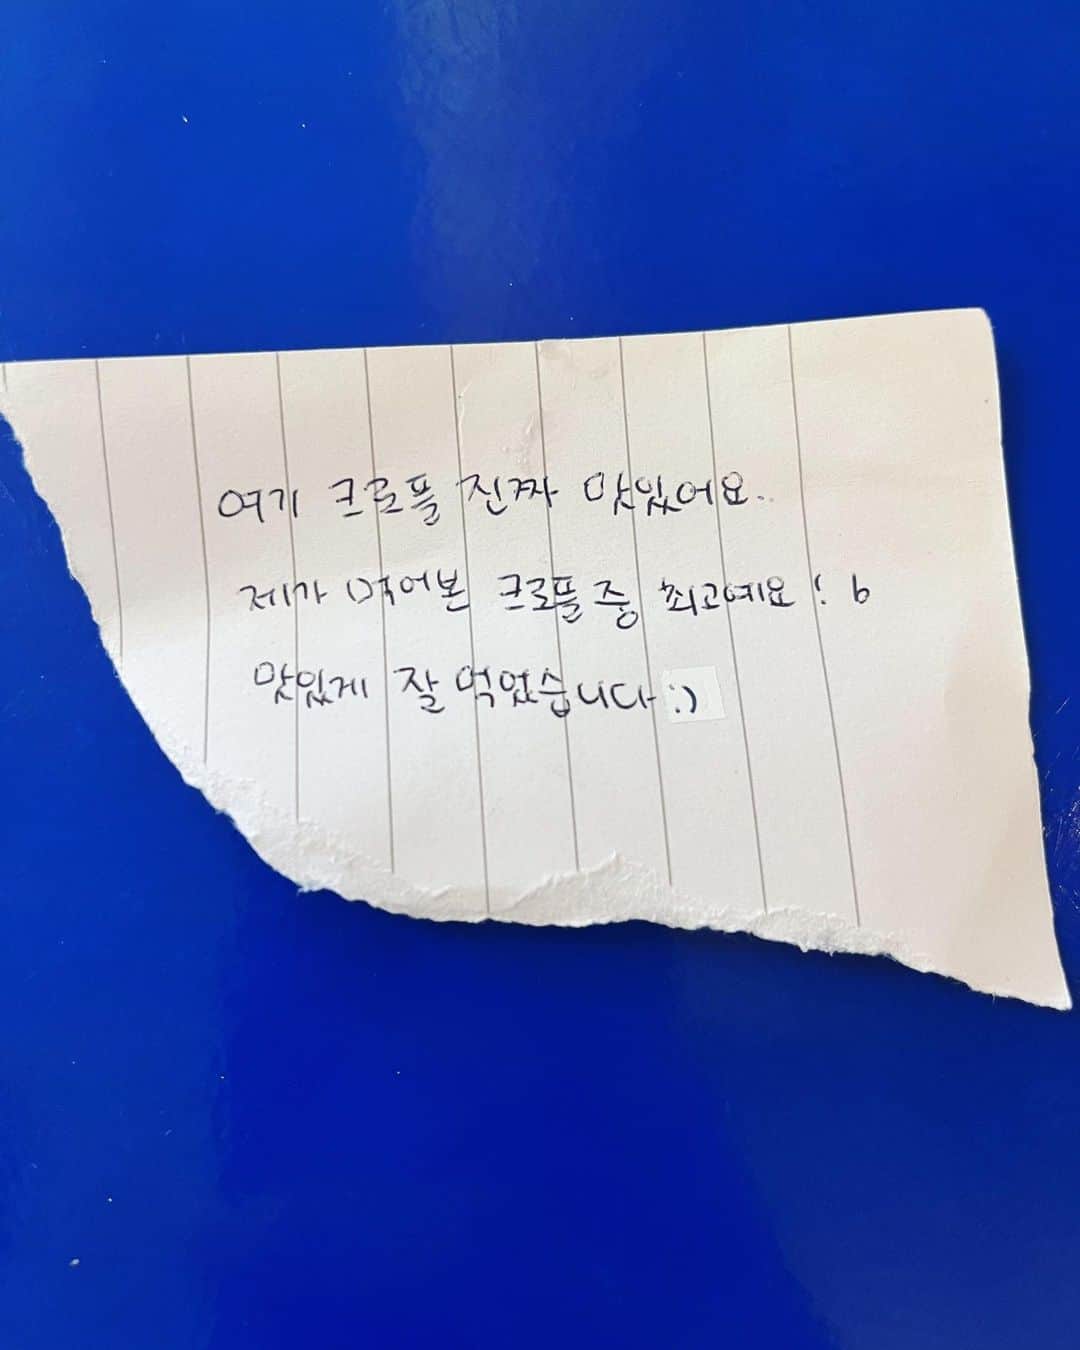 여기 크로플 진짜 맛있어요..
제가 먹어본 크로플 중 최고예요! b
맛있게 잘 먹었습니다 :)